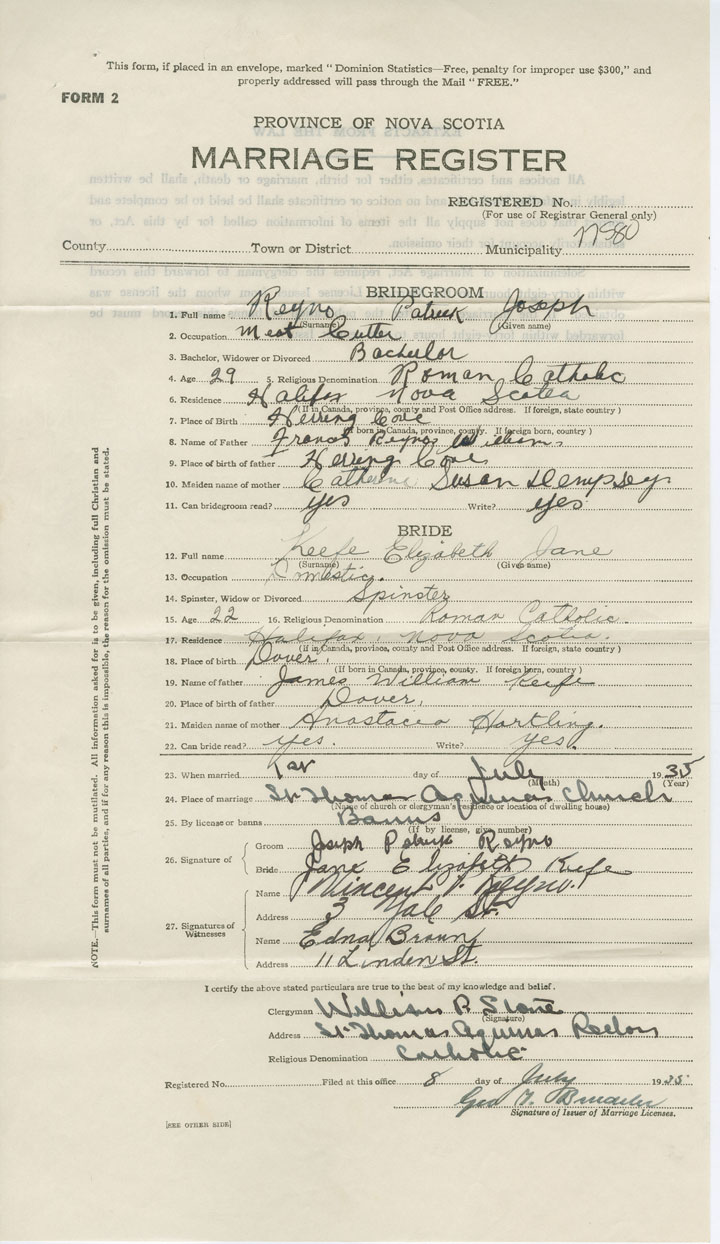 This form, if placed in an envelope, marked "Dominion Statistics—Free, penalty for improper use $300," and
properly addressed will pass through the Mail "FREE."
FORM 2
PROVINCE OF NOVA SCOTIA
MARRIAGE REGISTER
REGISTERED No.
(For use of Registrar General only)
County Town or District Municipality
BRIDEGROOM
1. Full name Reyno Patrick Joseph
(Surname) (Given name)
2. Occupation Meat Cutter
3. Bachelor, Widower or Divorced Bachelor
4. Age 29 5. Religious Denomination Roman Catholic
6. Residence Halifax Nova Scotia
(If in Canada, province, county and Post Office address. If foreign, state country)
7. Place of Birth Herring Cove
(If born in Canada, province, county. If foreign born, country)
8. Name of Father Francis Reyno Williams
9. Place of birth of father Herring Cove
10. Maiden name of mother Catherine Susan Dempsey
11. Can bridegroom read? yes Write? yes
BRIDE
12. Full name Keefe Elizabeth Jane
(Surname) (Given name)
13. Occupation Domestic.
14. Spinster, Widow or Divorced Spinster
15. Age 22 16. Religious Denomination Roman Catholic.
17. Residence Halifax, Nova Scotia.
(If in Canada, province, county and Post Office address. If foreign, state country)
18. Place of birth Dover.
(If born in Canada, province, county. If foreign born, country)
19. Name of father James William Keefe
20. Place of birth of father Dover.
21. Maiden name of mother Anastacea Hartling.
22. Can bride read? yes. Write? yes.
23. When married 1st day of July 1935
(Month) (Year)
24. Place of marriage St Thomas Aquinas Church
(Name of church or clergyman's residence or location of dwelling house)
25. By license or banns Banns
(If by license, give number)
26. Signature of
Groom Joseph Patrick Reyno
Bride Jane Elizabeth Keefe
27. Signatures of Witnesses
Name Vincent Reyno.
Address 3 Yale St.
Name Edna Braun
Address 11 Linden St.
I certify the above stated particulars are true to the best of my knowledge and belief.
Clergyman William P
(Signature)
Address St Thomas Aquinas
Religious Denomination Catholic
Registered No. Filed at this office 8 day of July 1935
Geo
Signature of Issuer of Marriage Licenses.
[SEE OTHER SIDE]
NOTE.—This form must not be mutilated. All information asked for is to be given, including full Christian and
surnames of all parties, and if for any reason this is impossible, the reason for the omission must be stated.